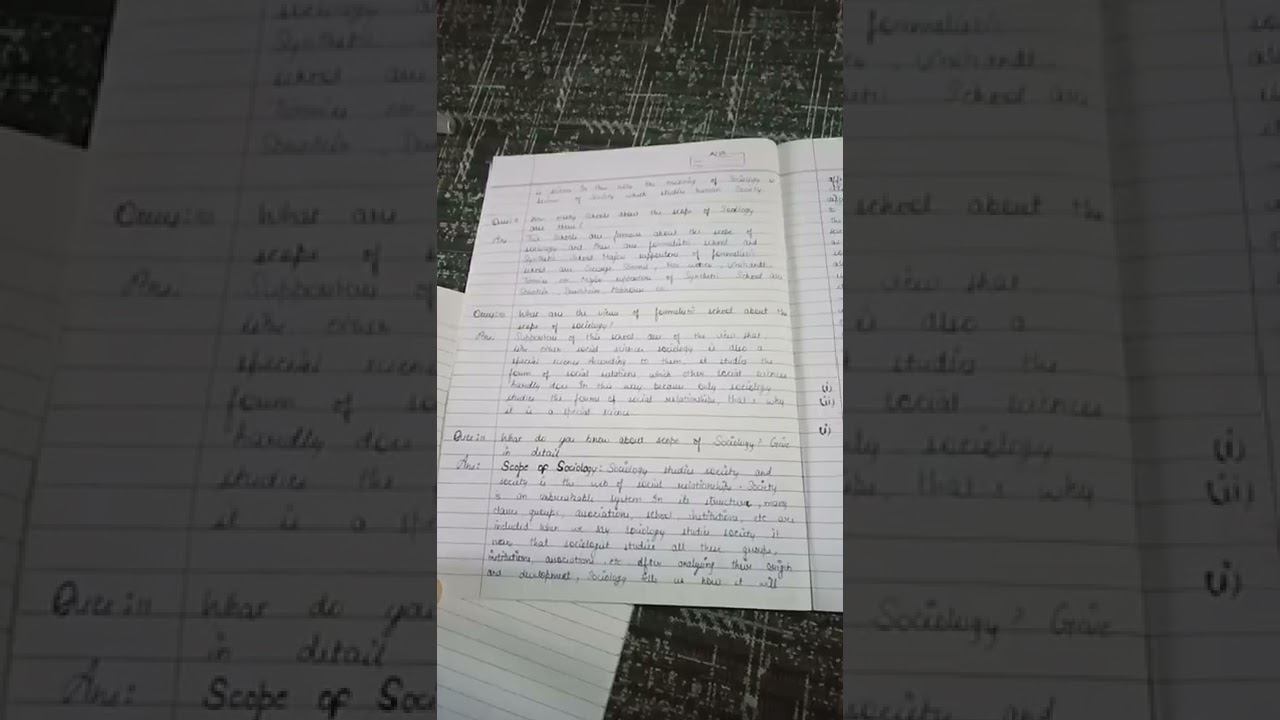 is science In this way the meaning of Sociology is
science of Society which studies human Society
Ques: How many Schools about the scope of Sociology
are there?
Ans. Two Schools are famous about the scope of
sociology and these are formalistic school and
Synthetic School Major supporters of formalistic
school are George Simmel, Max weber, Vierkandt,
Tonnies etc Major supporters of Synthetic School are
Durkheim, Hobhouse etc.
Ques:10 What are the views of formalistic school about the
scope of sociology?
Ans. Supporters of this school are of the view that
like other social sciences sociology is also a
special science According to them, it studies the
form of social relations which other social sciences
hardly does In this way because only sociology
studies the forms of social relationships, that's why
it is a special science
Ques:11 What do you know about scope of Sociology? Give
in detail
Ans: Scope of Sociology: Sociology studies society and
society is the web of social relationships. Society
is an unbreakable system In its structure, many
classes groups, associations, school, institutions, etc are
included When we say sociology studies society it
means that sociologist studies all these groups,
institutions, associations, etc After analysing their origin
and development, Sociology tells us how it will
(i)
(ii)
(i)